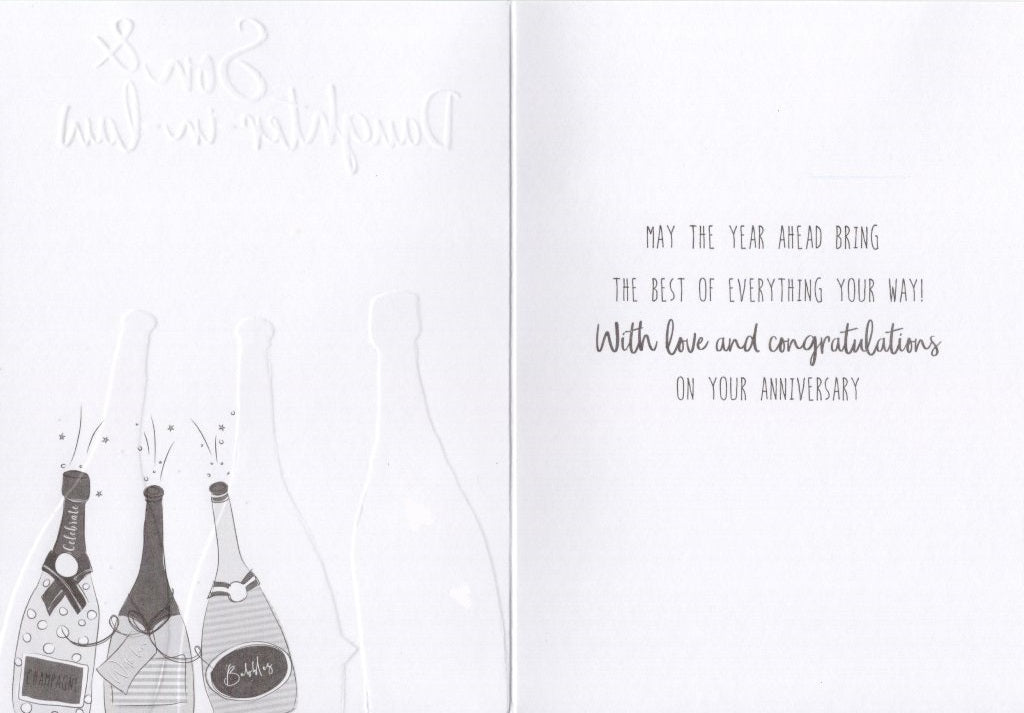 Son &
Daughter-in-law
Celebrate!
CHAMPAGNE
Bubbles
MAY THE YEAR AHEAD BRING
THE BEST OF EVERYTHING YOUR WAY!
With love and congratulations
ON YOUR ANNIVERSARY